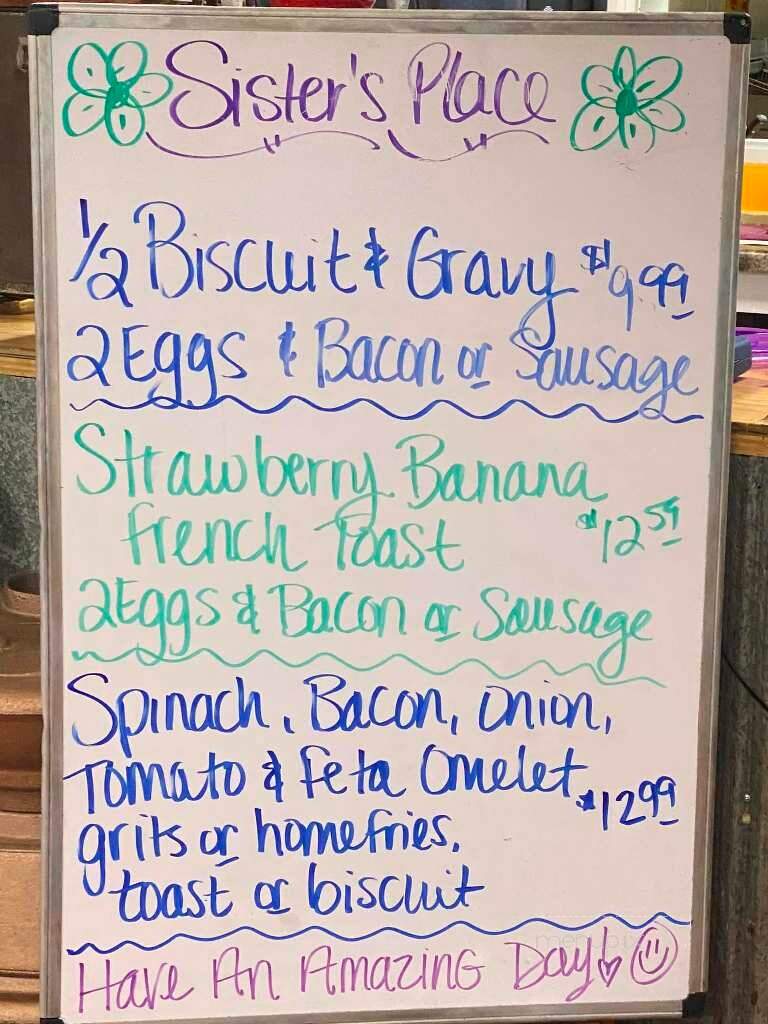 Sister's Place
1/2 Biscuit & Gravy $9.99
2 Eggs & Bacon or Sausage
Strawberry Banana
French Toast $12.59
2 Eggs & Bacon or Sausage
Spinach, Bacon, Onion,
Tomato & Feta Omelet $12.99
grits or homefries.
toast or biscuit
Have An Amazing Day!